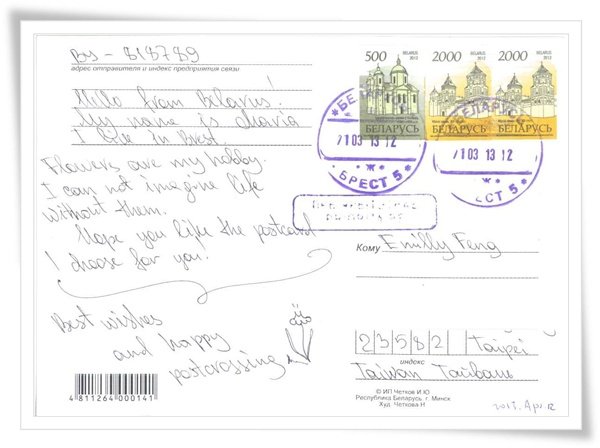 By - 818789
адрес отправителя и индекс предприятия связи
Hello from Belarus!
My name is Maria
I live in Brest.
Flowers are my hobby.
I can not imagine life
without them.
Hope you like the postcard
I choose for you.
Best wishes
and happy
postcrossing
4 811264 000141
500
BELARUS
2012
БЕЛАРУСЬ
2000
BELARUS
2012
БЕЛАРУСЬ
2000
BELARUS
2012
БЕЛАРУСЬ
21 03 13 12
Ж
БРЕСТ 5
БЕЛАРУСЬ
21 03 13 12
Ж
ЕСТ 5
Кому Emilly Feng
23582 Taipei
индекс
Taiwan
© ИП Четков И Ю
Республика Беларусь, г. Минск
Худ. Четкова Н
2013. Apr. 12